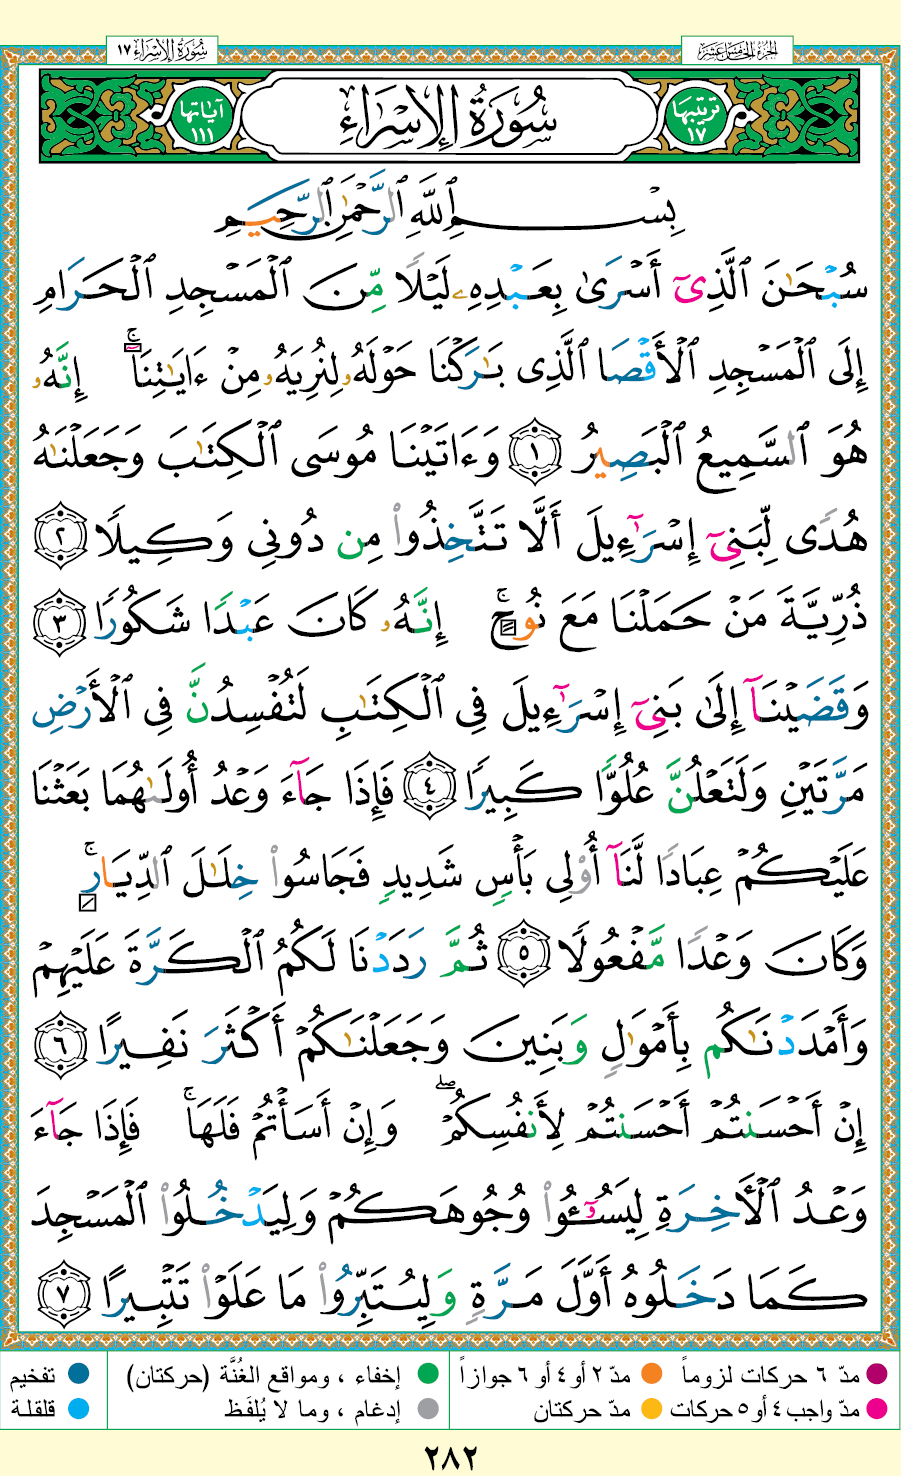 الجزء الخامس عشر
سورة الإسراء ١٧
ترتيبها ١٧
سُورَةُ الإِسْرَاءِ
آياتها ١١١
بِسْمِ ٱللَّهِ ٱلرَّحْمَٰنِ ٱلرَّحِيمِ
سُبْحَٰنَ ٱلَّذِىٓ أَسْرَىٰ بِعَبْدِهِۦ لَيْلًا مِّنَ ٱلْمَسْجِدِ ٱلْحَرَامِ
إِلَى ٱلْمَسْجِدِ ٱلْأَقْصَا ٱلَّذِى بَٰرَكْنَا حَوْلَهُۥ لِنُرِيَهُۥ مِنْ ءَايَٰتِنَآ ۚ إِنَّهُۥ
هُوَ ٱلسَّمِيعُ ٱلْبَصِيرُ ١ وَءَاتَيْنَا مُوسَى ٱلْكِتَٰبَ وَجَعَلْنَٰهُ
هُدًى لِّبَنِىٓ إِسْرَٰٓءِيلَ أَلَّا تَتَّخِذُوا۟ مِن دُونِى وَكِيلًا ٢
ذُرِّيَّةَ مَنْ حَمَلْنَا مَعَ نُوحٍ ۚ إِنَّهُۥ كَانَ عَبْدًا شَكُورًا ٣
وَقَضَيْنَآ إِلَىٰ بَنِىٓ إِسْرَٰٓءِيلَ فِى ٱلْكِتَٰبِ لَتُفْسِدُنَّ فِى ٱلْأَرْضِ
مَرَّتَيْنِ وَلَتَعْلُنَّ عُلُوًّا كَبِيرًا ٤ فَإِذَا جَآءَ وَعْدُ أُولَىٰهُمَا بَعَثْنَا
عَلَيْكُمْ عِبَادًا لَّنَآ أُو۟لِى بَأْسٍ شَدِيدٍ فَجَاسُوا۟ خِلَٰلَ ٱلدِّيَارِ ۚ
وَكَانَ وَعْدًا مَّفْعُولًا ٥ ثُمَّ رَدَدْنَا لَكُمُ ٱلْكَرَّةَ عَلَيْهِمْ
وَأَمْدَدْنَٰكُم بِأَمْوَٰلٍ وَبَنِينَ وَجَعَلْنَٰكُمْ أَكْثَرَ نَفِيرًا ٦
إِنْ أَحْسَنتُمْ أَحْسَنتُمْ لِأَنفُسِكُمْ ۖ وَإِنْ أَسَأْتُمْ فَلَهَا ۚ فَإِذَا جَآءَ
وَعْدُ ٱلْءَاخِرَةِ لِيَسُۥٓـُٔوا۟ وُجُوهَكُمْ وَلِيَدْخُلُوا۟ ٱلْمَسْجِدَ
كَمَا دَخَلُوهُ أَوَّلَ مَرَّةٍ وَلِيُتَبِّرُوا۟ مَا عَلَوْا۟ تَتْبِيرًا ٧
مدّ ٦ حركات لزوماً
مدّ ٢ أو ٤ أو ٦ جوازاً
إخفاء ، ومواقع الغُنَّة (حركتان)
تفخيم
مدّ واجب ٤ أو ٥ حركات
مدّ حركتان
إدغام ، وما لا يُلفَظ
قلقلة
٢٨٢